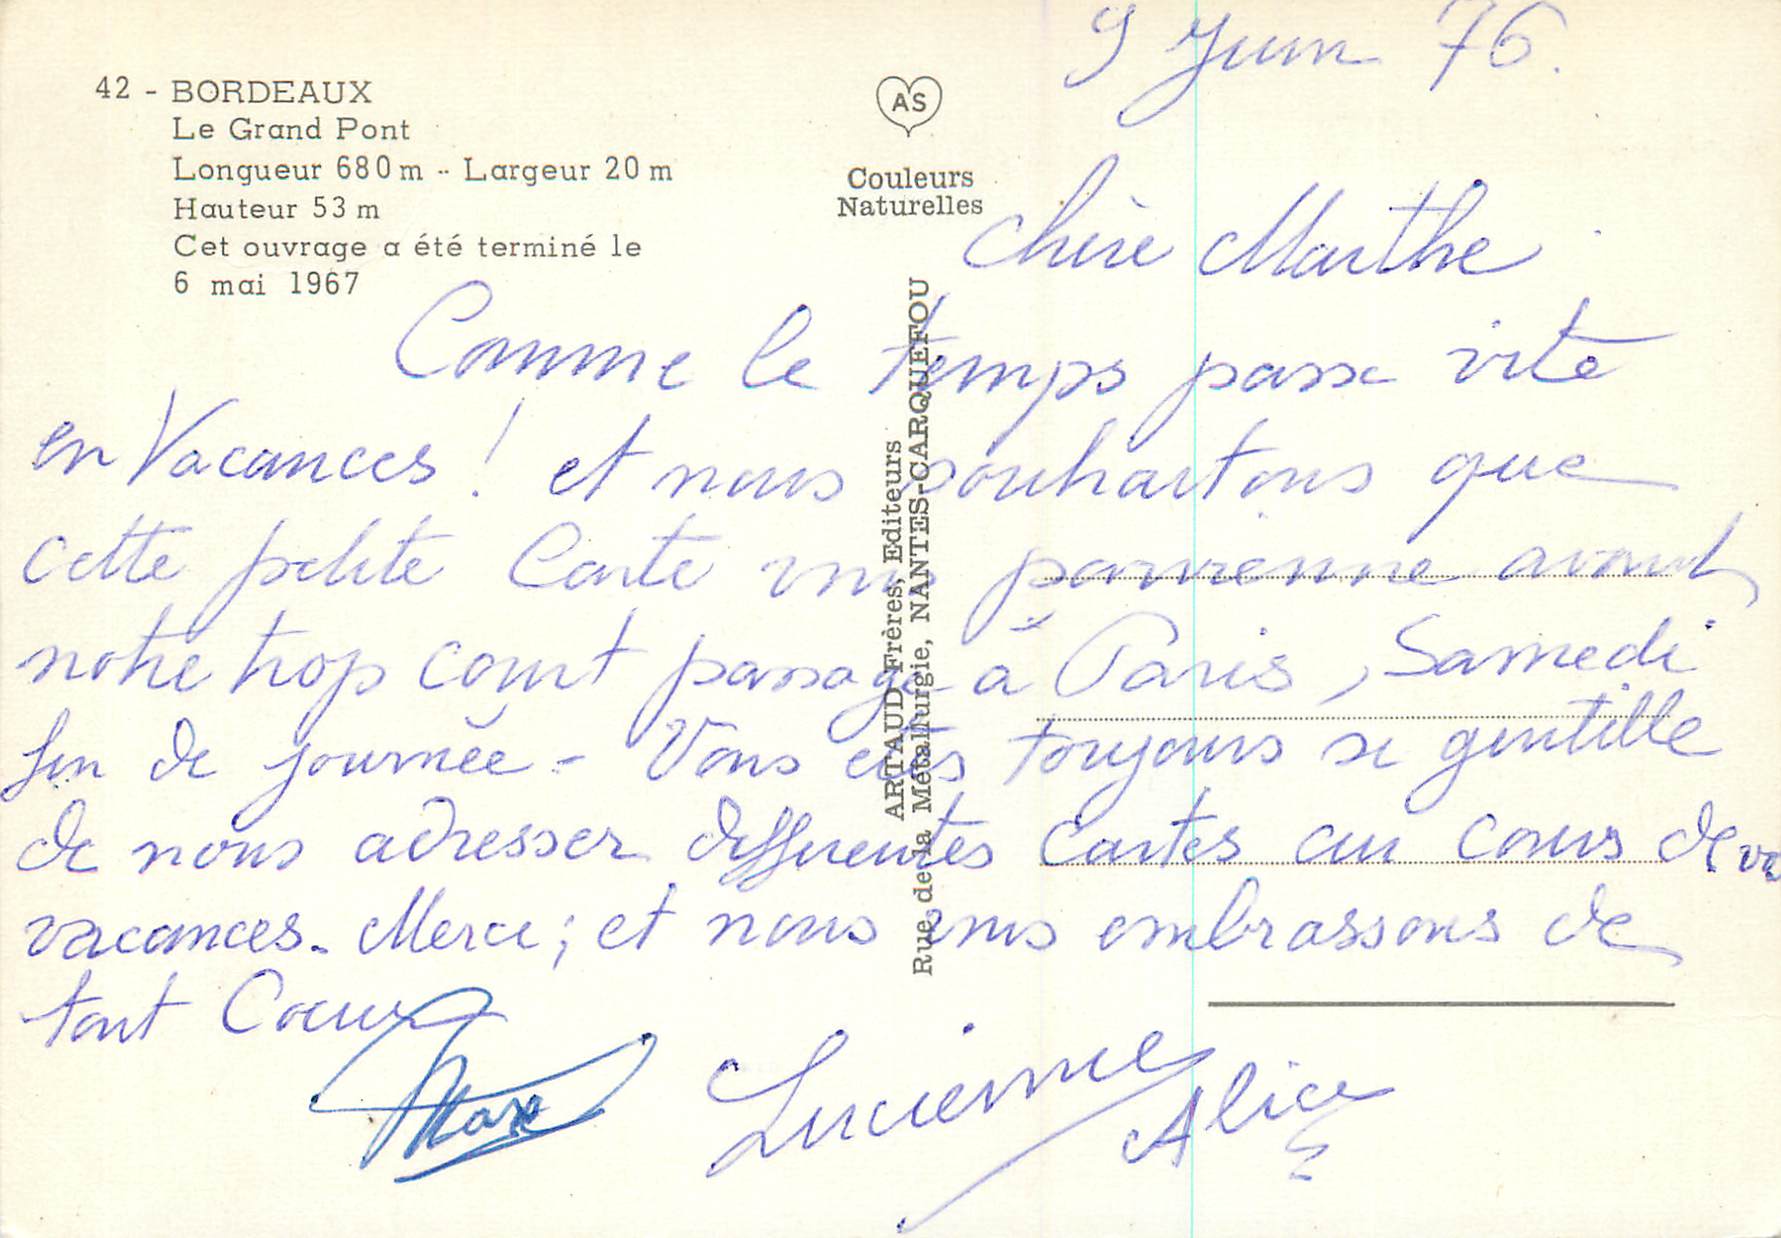 42 - BORDEAUX
Le Grand Pont
Longueur 680 m - Largeur 20 m
Hauteur 53 m
Cet ouvrage a été terminé le
6 mai 1967
AS
Couleurs
Naturelles
ARTAUD Frères, Editeurs
Rue de la Métallurgie, NANTES-CARQUEFOU
9 Juin 76.
Chère Marthe
Comme le temps passe vite
en Vacances ! et nous souhaitons que
cette petite Carte vous parvienne avant
notre trop court passage à Paris, Samedi
fin de journée - Vous êtes toujours si gentille
de nous adresser différentes Cartes au cours de vos
vacances. Merci ; et nous vous embrassons de
tout Coeur
Lucienne
Alice